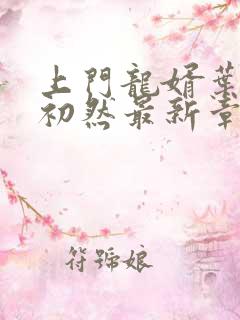 上門龍婿葉
初然最新章
符號娘